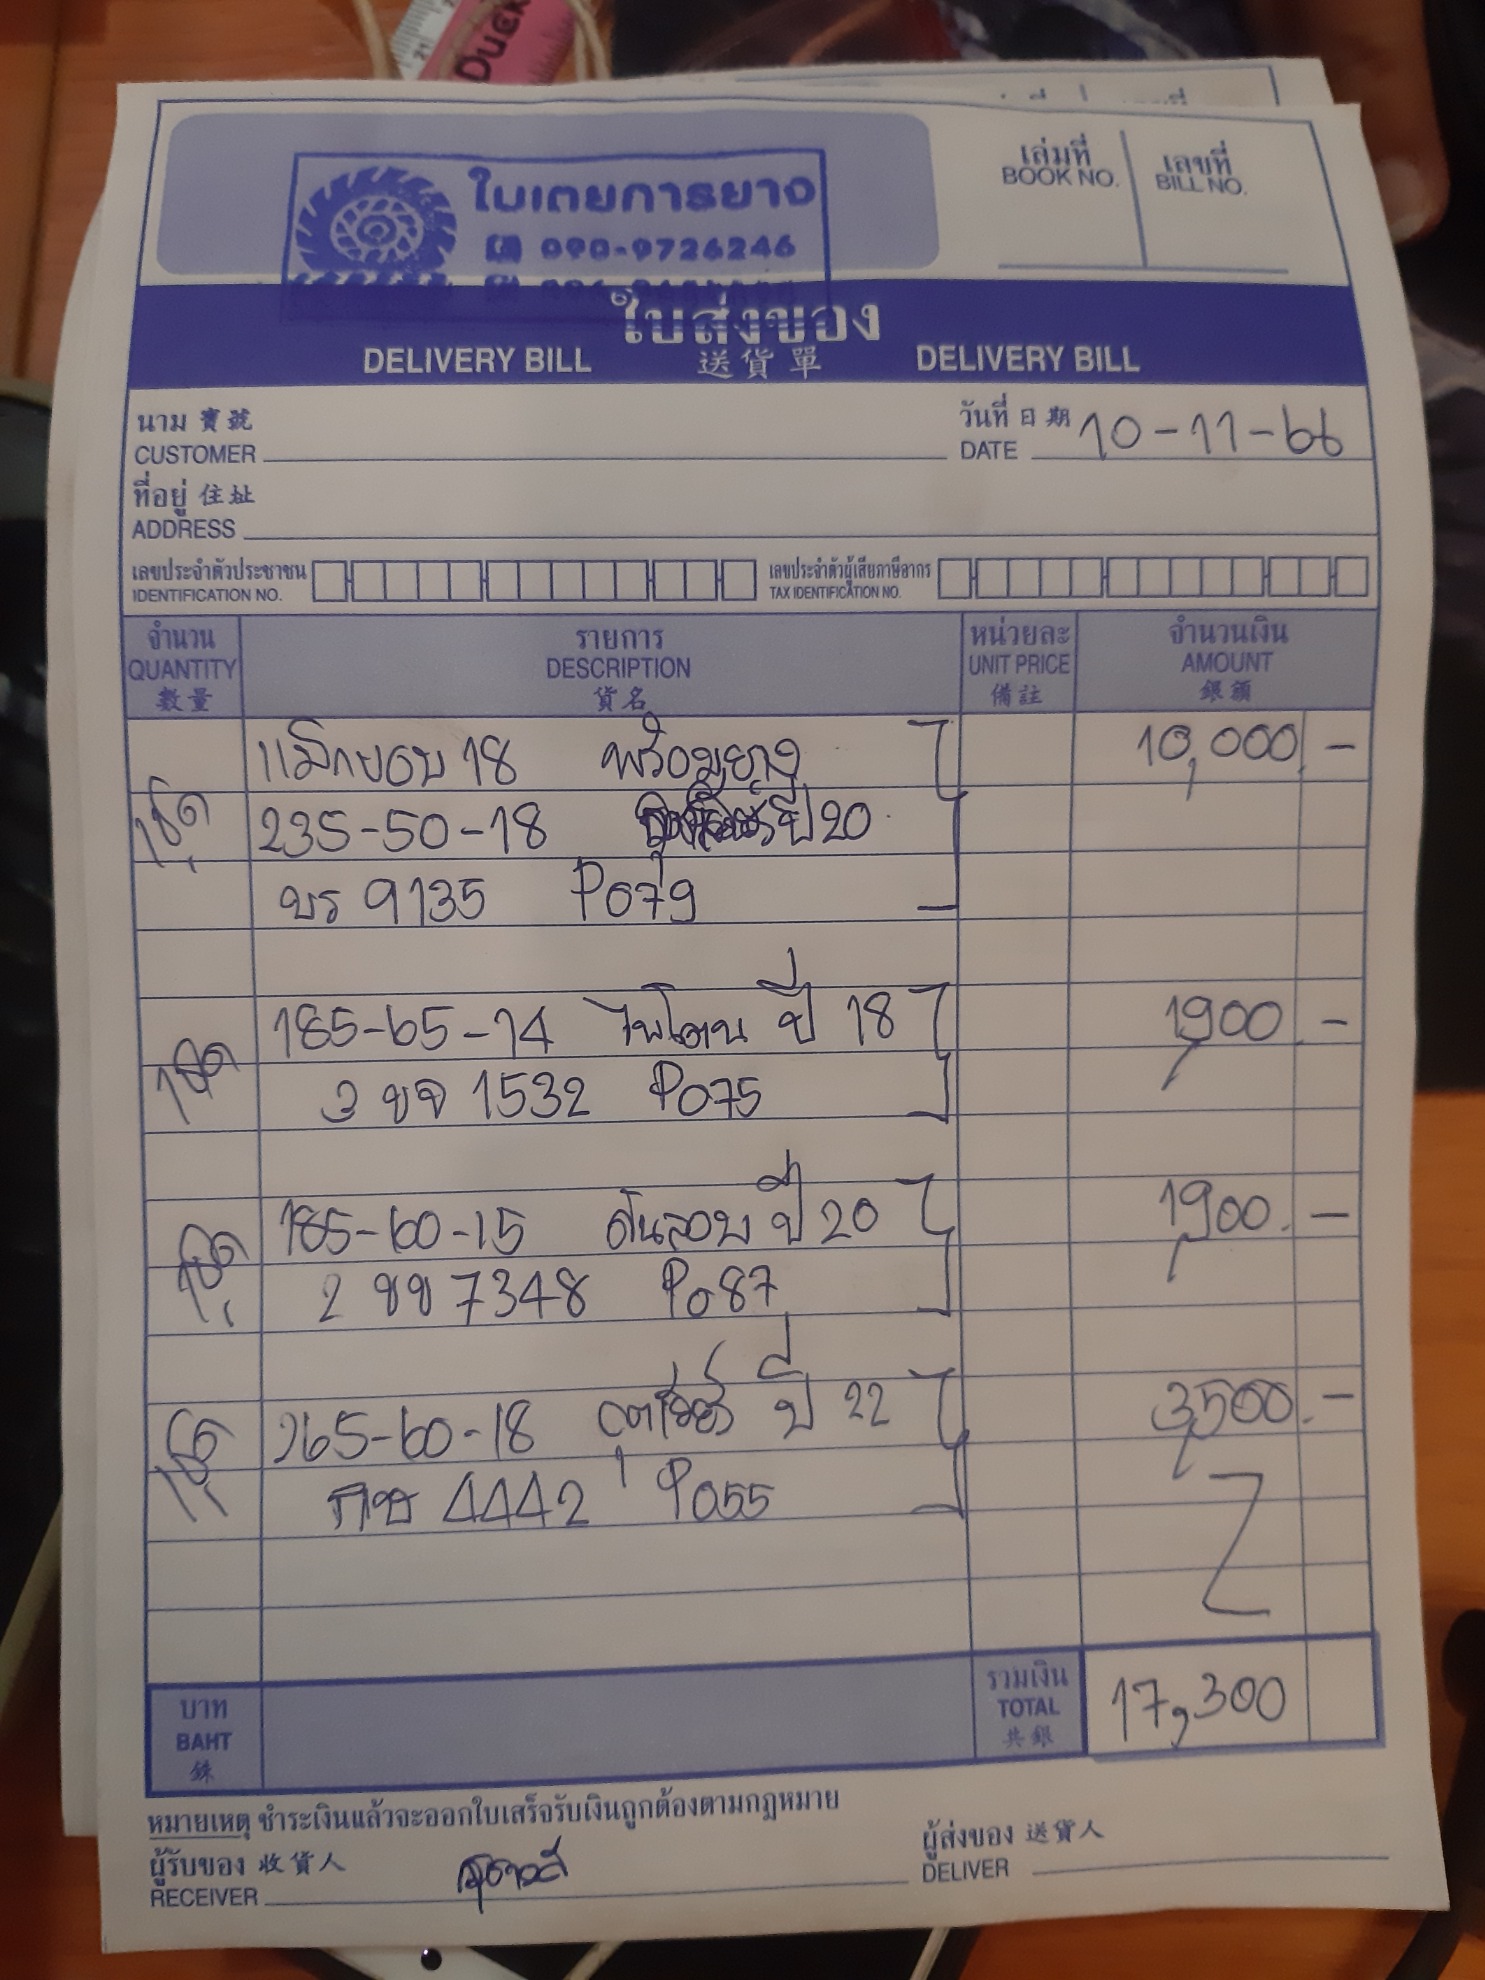 Duck
เล่มที่
BOOK NO.
เลขที่
BILL NO.
ใบเตยการยาง
090-9726246
ใบส่งของ
DELIVERY BILL 送貨單 DELIVERY BILL
นาม 寶號
CUSTOMER
วันที่ 日期 10-11-66
DATE
ที่อยู่ 住址
ADDRESS
เลขประจำตัวประชาชน
IDENTIFICATION NO.
เลขประจำตัวผู้เสียภาษีอากร
TAX IDENTIFICATION NO.
จำนวน รายการ หน่วยละ จำนวนเงิน
QUANTITY DESCRIPTION UNIT PRICE AMOUNT
數量 貨名 備註 銀額
แม็กขอบ 18 พร้อมยาง 10,000 -
1ชุด 235-50-18 ปี 20
บร 9135 P079
185-65-14 ไพโตน ปี 18 1900 -
1ชุด 3 ขจ 1532 P075
185-60-15 ดันลอบ ปี 20 1900 -
1ชุด 2 ขข 7348 P087
265-60-18 ปี 22 3,500 -
1ชุด 4442 P055
บาท
BAHT
銖
รวมเงิน
TOTAL 17,300
共銀
หมายเหตุ ชำระเงินแล้วจะออกใบเสร็จรับเงินถูกต้องตามกฎหมาย
ผู้รับของ 收貨人
RECEIVER
ผู้ส่งของ 送貨人
DELIVER